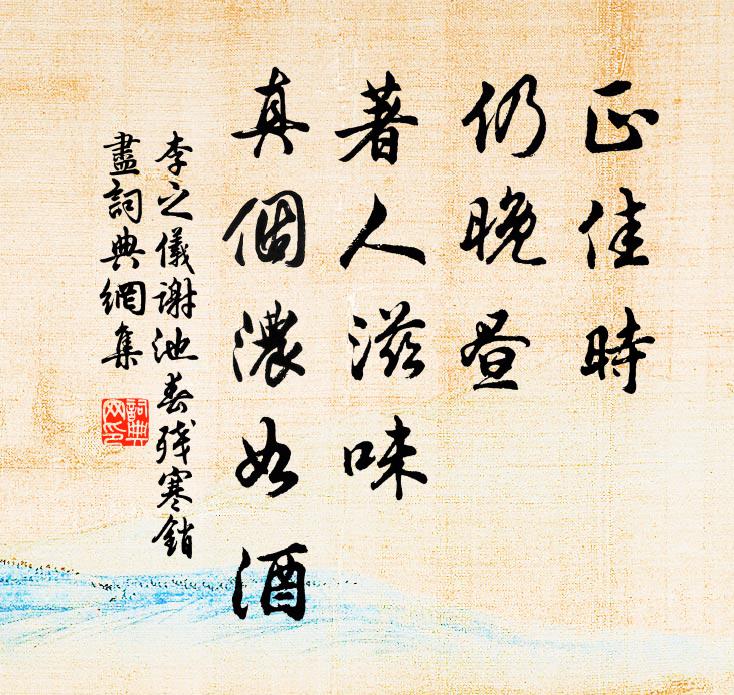 正佳時
仍晚昼
著人滋味
真個濃如酒
李之儀謝池春殘寒銷
盡詞典網集
詞典
网印